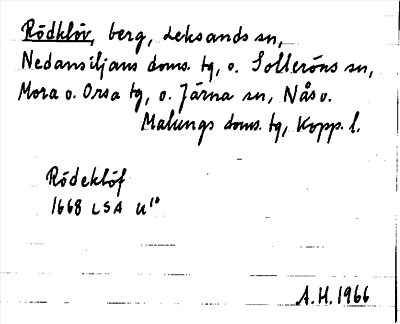 Rödklöv, berg, Leksands sn,
Nedansiljans doms. tg, o. Solleröns sn,
Mora o. Orsa tg, o. Järna sn, Nås o.
Malungs doms. tg, Kopp. l.
Rödeklöf
1668 LSA U¹⁰
A.H. 1966